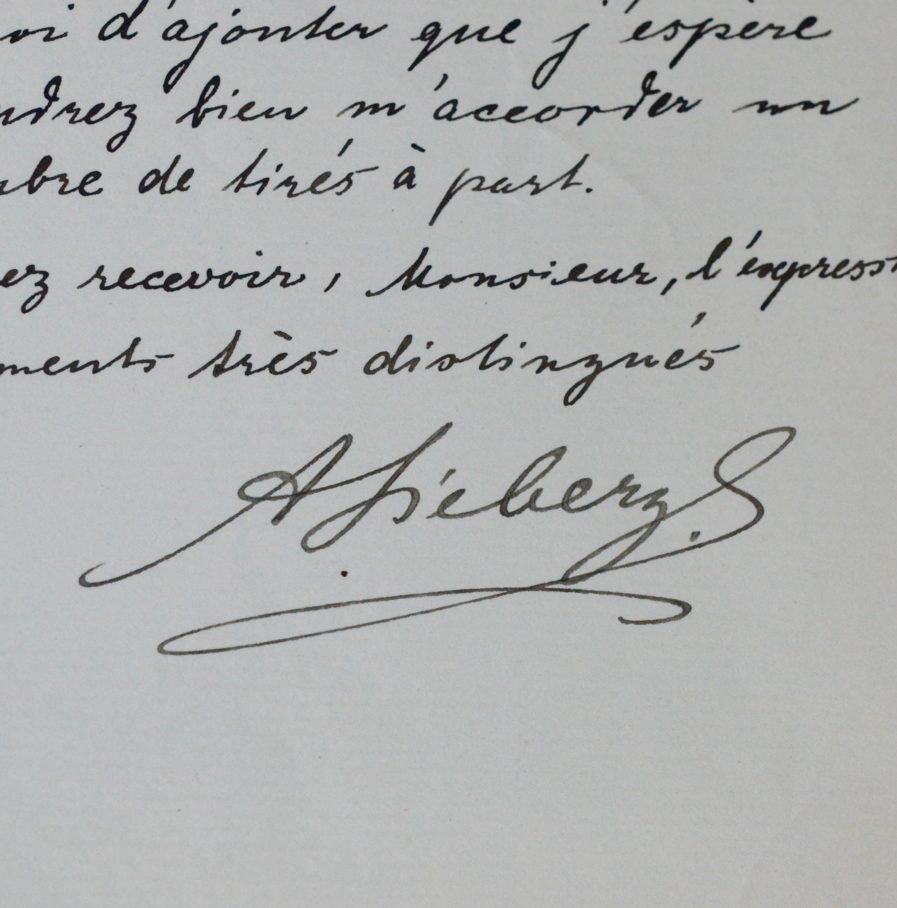 oi d'ajouter que j'espère
udrez bien m'accorder un
bre de tirés à part.
ez recevoir, Monsieur, l'express
ments très distingués
A Sieberz